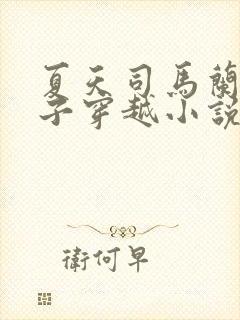 夏天司馬蘭
子穿越小說
衛何早